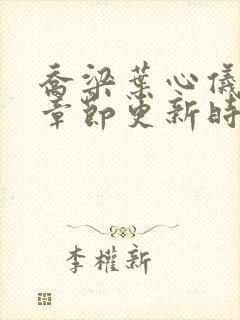 乔梁葉心儀
章節更新時
李權新